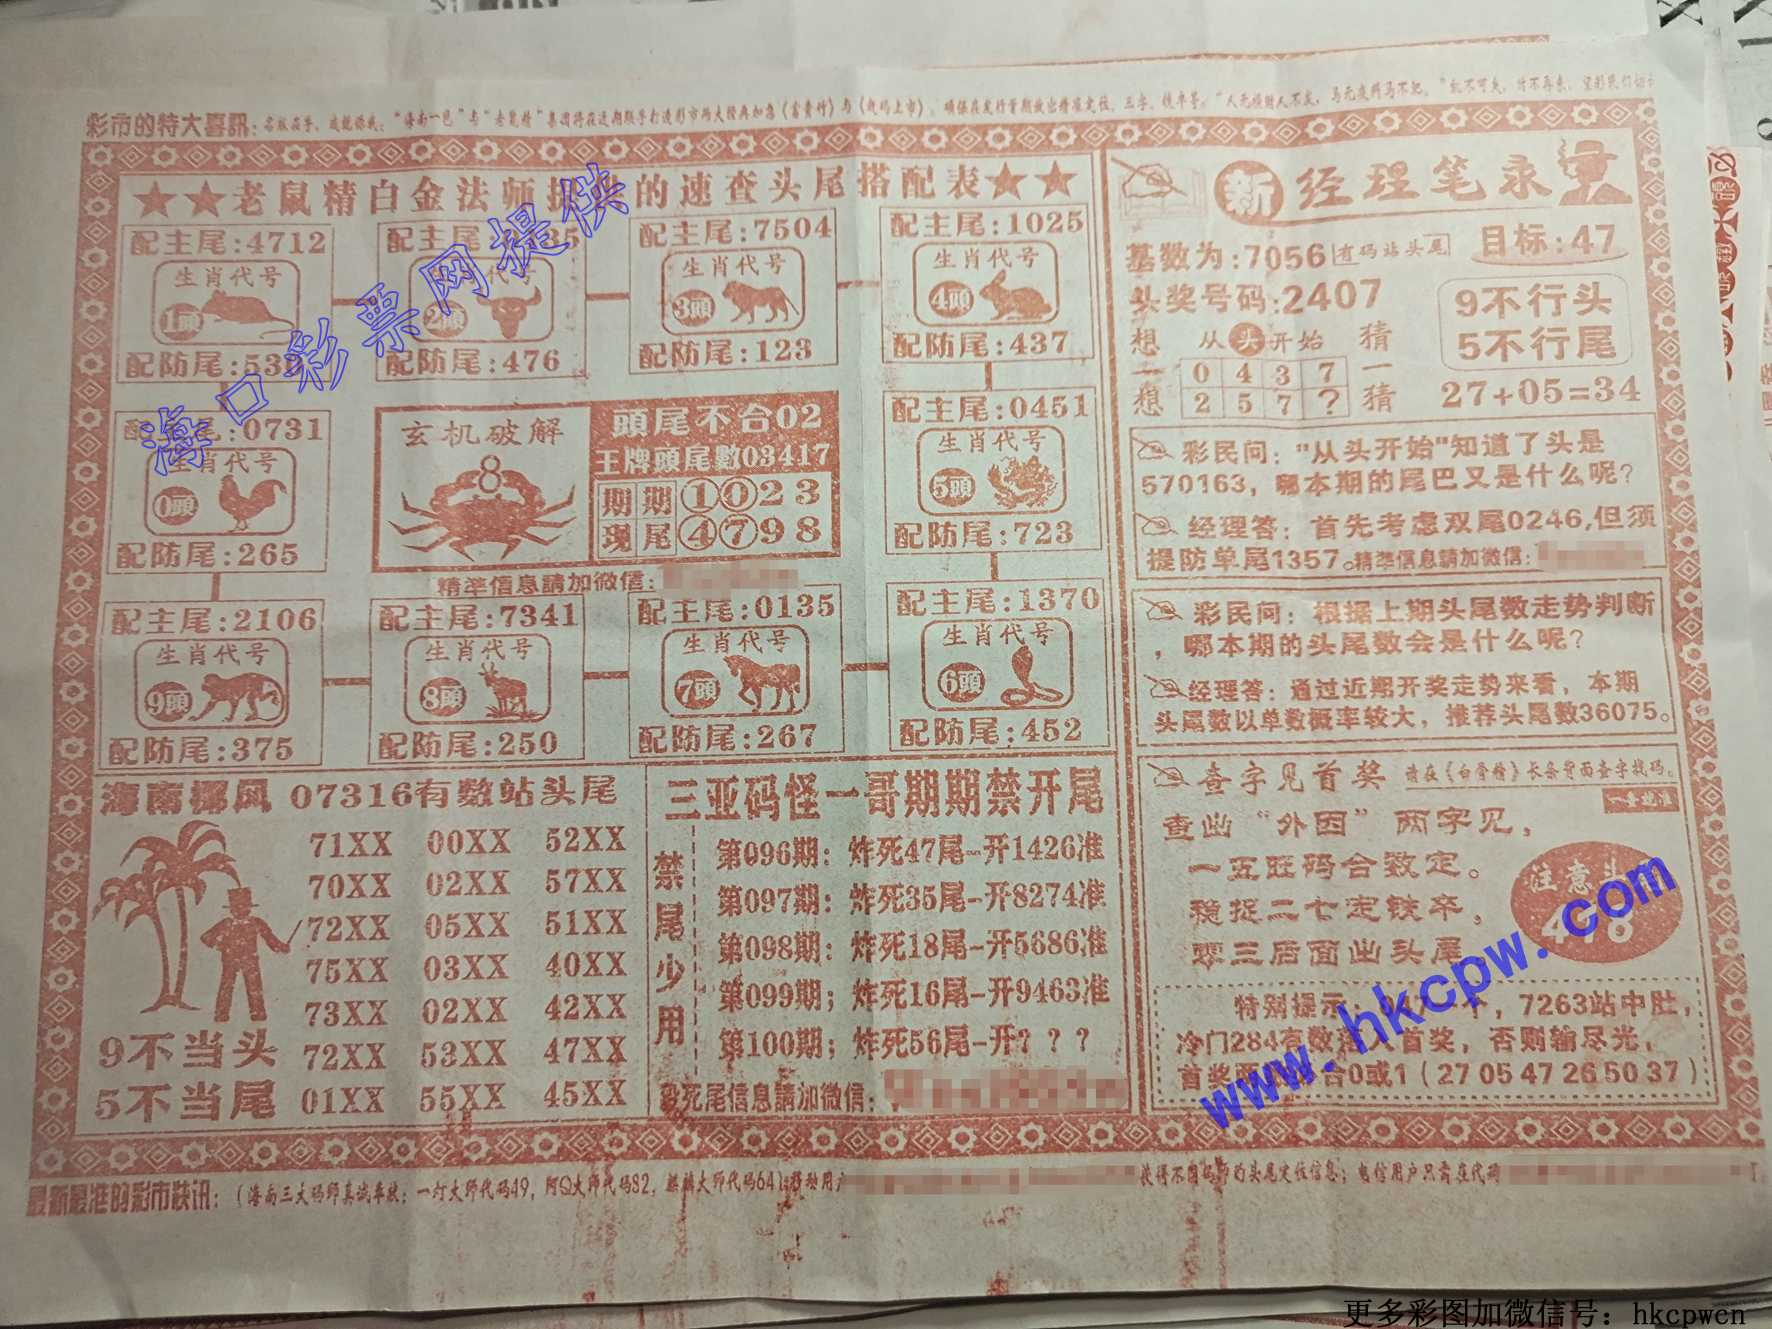 彩市的特大喜訊：
★★老鼠精白金法师提供的速查头尾搭配表★★
配主尾:4712
生肖代号
1頭
配主尾:
生肖代号
2頭
配防尾:476
配主尾:7504
生肖代号
3頭
配防尾:123
配主尾:1025
生肖代号
4頭
配防尾:437
配主尾:0731
生肖代号
0頭
配防尾:265
玄机破解
8
頭尾不合02
王牌頭尾數03417
期期①⓪23
现尾④⑦98
精準信息請加微信:
配主尾:0451
生肖代号
5頭
配防尾:723
配主尾:2106
生肖代号
9頭
配防尾:375
配主尾:7341
生肖代号
8頭
配防尾:250
配主尾:0135
生肖代号
7頭
配防尾:267
配主尾:1370
生肖代号
6頭
配防尾:452
海南椰风 07316有数站头尾
71XX 00XX 52XX
70XX 02XX 57XX
72XX 05XX 51XX
75XX 03XX 40XX
73XX 02XX 42XX
72XX 53XX 47XX
01XX 55XX 45XX
9不当头
5不当尾
三亚码怪一哥期期禁开尾
禁尾少用
第096期：炸死47尾-开1426准
第097期：炸死35尾-开8274准
第098期：炸死18尾-开5686准
第099期；炸死16尾-开9463准
第100期；炸死56尾-开？？？
死尾信息請加微信:
新 经理笔录
基数为:7056 有码站头尾 目标:47
头奖号码:2407
9不行头
5不行尾
想一想
从头开始
猜一猜
0 4 3 7
2 5 7 ?
27+05=34
彩民问："从头开始"知道了头是
570163，哪本期的尾巴又是什么呢？
经理答：首先考虑双尾0246,但须
提防单尾1357。精準信息請加微信:
彩民问：根据上期头尾数走势判断
，哪本期的头尾数会是什么呢？
经理答：通过近期开奖走势来看，本期
头尾数以单数概率较大，推荐头尾数36075。
查字见首奖 请在《白骨精》长条背面查字找码。
查出"外因"两字见，
一五旺码合数定。
稳捉二七定铁卒，
零三后面出头尾。
注意头
特别提示：
7263站中肚，
冷门284有数
首奖，否则输尽光，
合0或1（27 05 47 26 50 37）
最新最准的彩市快讯：（海南三大码师真诚奉献：一灯大师代码49，阿Q大师代码82，麒麟大师代码64)
获得不同码师的头尾定位信息；电信用户只需在代码
海口彩票网提供
www.hkcpw.com
更多彩图加微信号：hkcpwcn